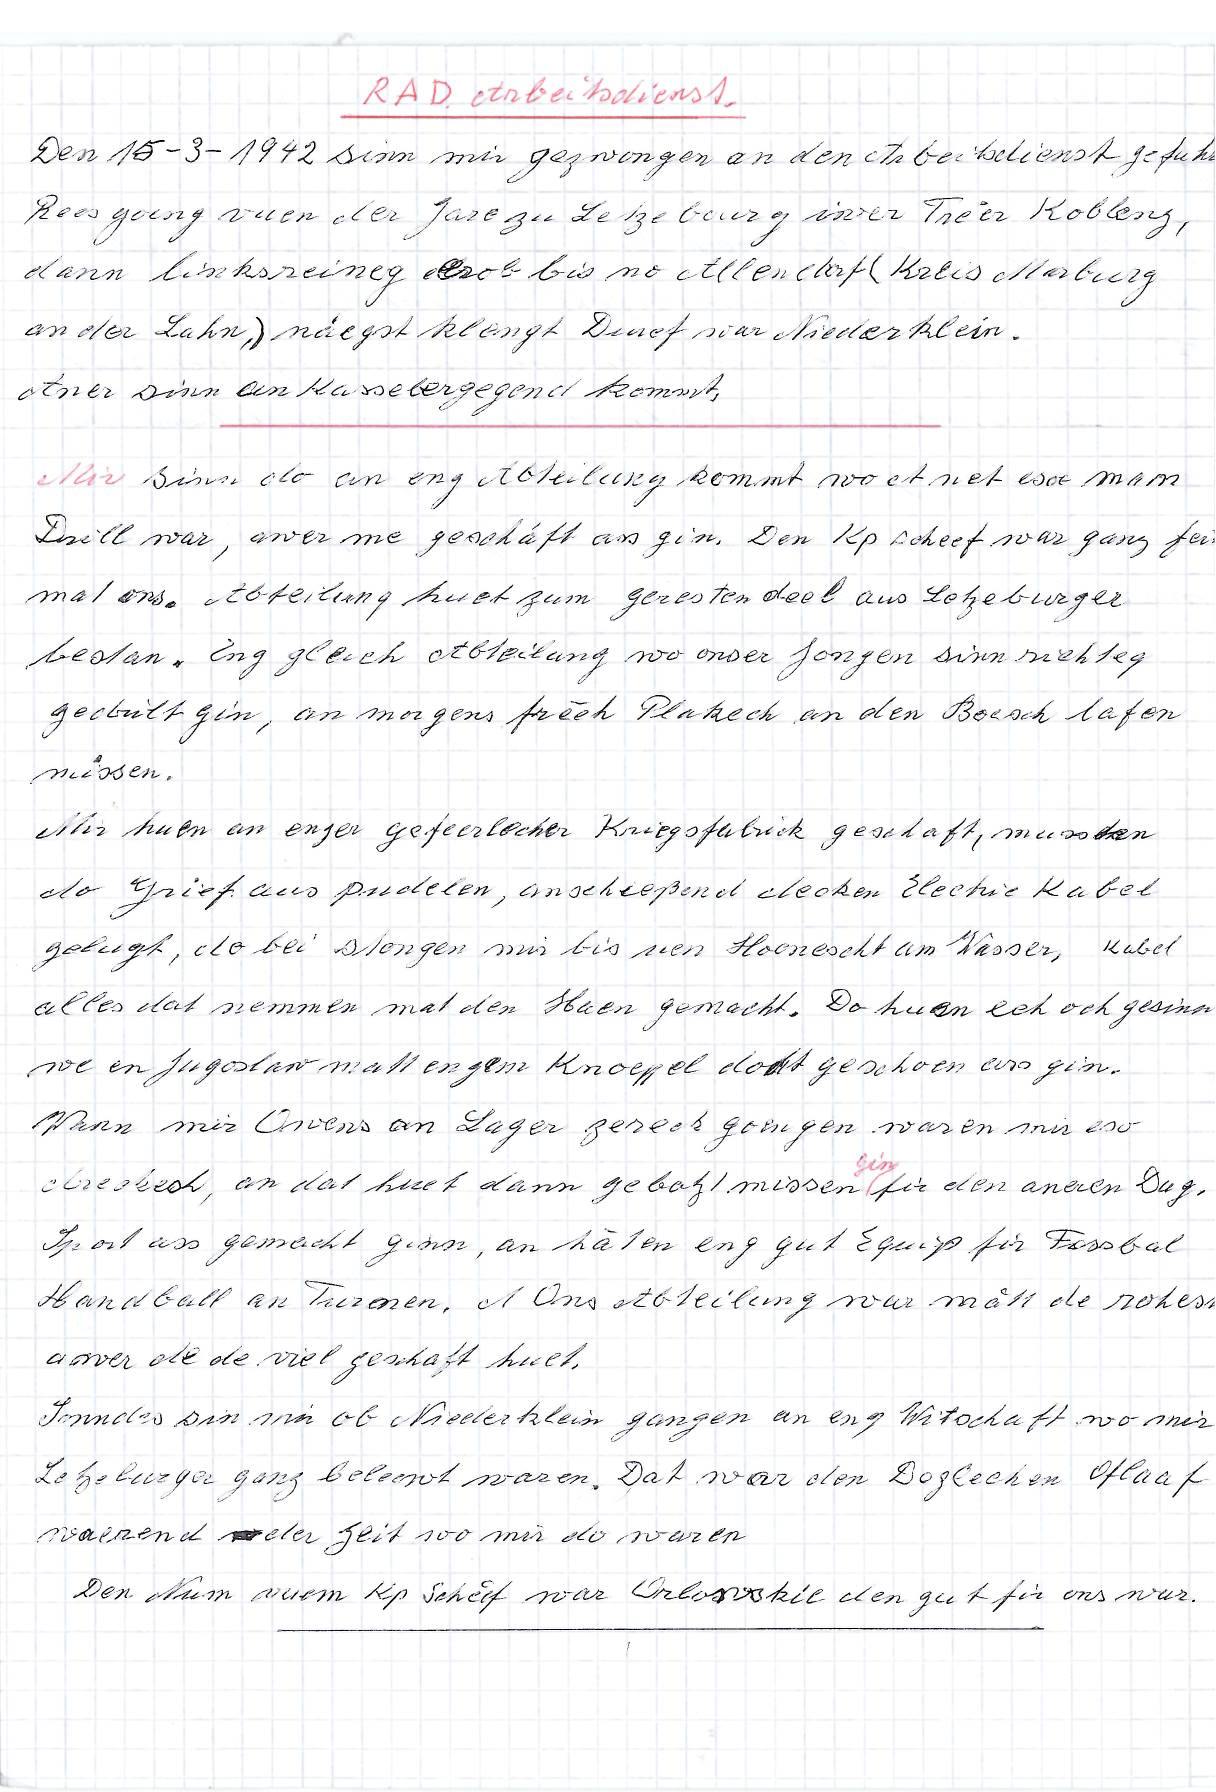 RAD. Arbeitsdienst.
Den 15-3-1942 sinn mir gezwongen an den Arbeitsdienst gefuh
Rees going vuen der Jare zu Letzebourg iwer Tréer Koblenz,
dann linksreineg erob bis no Allendorf (Kreis Marburg
an der Lahn,) näegst klengt Duerf war Niederklein.
Aner sinn an Kasselergegend kommt,
Mir sinn do an eng Abteilung kommt wo et net esoe mam
Drill war, awer me geschäft ass gin. Den Kp scheef war ganz fei
mat ons. Abteilung huet zum geresten deel aus Letzeburger
bestan. Eng gleich Abteilung wo onser Jongen sinn richteg
gedrillt gin, an morgens fréeh Plakech an denBoesch lafen
müssen.
Mir huen an enger gefeerlecher Kriegsfabrick geschaft, mussten
do Grief aus pudelen, anschleßend decken Electric Kabel
gelugt, do bei stongen mir bis uen Hoenescht am Wasser, Kabel
alles dat nemmen mat den Haen gemacht. Do huen ech och gesinn
we en Jugoslaw matt engem Knoeppel dodt geschoen ass gin.
Wann mir Owens an Lager zereck goengen waren mir eso
dreckech, an dat huet dann gebotzt missen gin fir den aneren Dag.
Sport ass gemacht ginn, an häten eng gut Equip fir Fossbal
Handball an Turnen. Ons Abteilung war matt de rohes
awer dé de viel geschaft huet.
Sonndes sin mir ob Niederklein gangen an eng Witschaft wo mir
Letzeburger ganz beleewt waren. Dat war den Dozlechen Oflaaf
waerend der Zeit wo mir do waren
Den Num vuem Kp Schéef war Orlowskie den gut fir ons war.